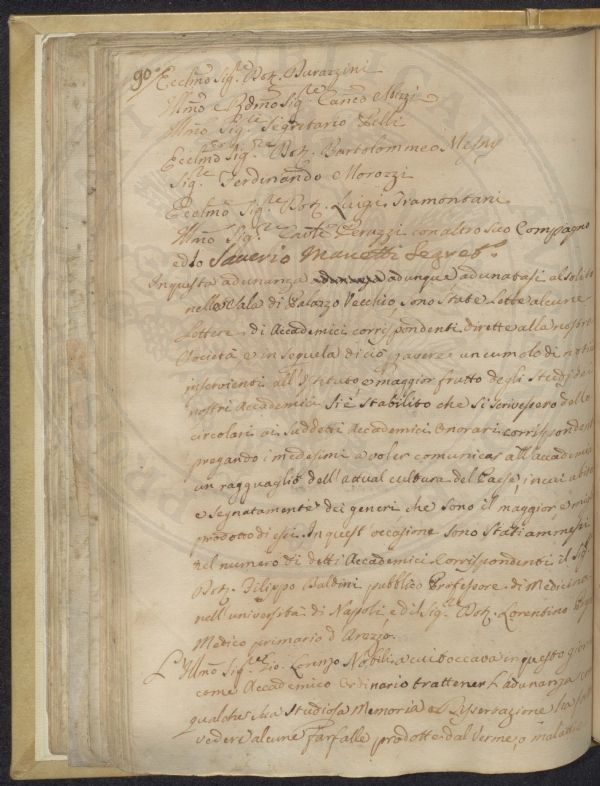 90.
Eccellmo Sig.e Dott. Durazzini
Illmo e Rdmo Sig.re Canco Mozzi
Illmo Sig.re Segretario Pelli
Eccellmo Sig.re Dott. Bartolommeo Mesny
Sig.re Ferdinando Morozzi
Eccellmo Sig.re Dott. Luigi Tramontani
Illmo Sig.re Conte Peruzzi con altro suo Compagno
ed Io Saverio Manetti Segret.o
In questa adunanza adunque adunatasi al solito
nella Sala di Palazzo Vecchio sono state lette alcune
Lettere di Accademici corrispondenti dirette alla nostra
Società e in sequela di ciò p avere un cumolo di notizie
inservienti all'Istituto e maggior frutto degli Studj dei
nostri Accademici si è stabilito che si scrivessero delle
circolari ai suddetti Accademici Onorari corrispondenti
pregando i medesimi a voler comunicar all'Accademia
un ragguaglio dell'actual cultura del Paese in cui abitano
e segnatamente dei generi che sono il maggior e miglior
prodotto di essi. In quest'occasione sono stati ammessi
nel numero di detti Accademici Corrispondenti il Sig.re
Dott. Filippo Baldini pubblico Professore di Medicina
nell'università di Napoli, ed il Sig.re Dott. Lorentino
Medico primario d'Arezzo.
L'Illmo Sig.re Gio. Lorenzo Nobili a cui toccava in questo giorno
come Accademico Ordinario trattener l'adunanza con
qualche sua studiosa Memoria o Dissertazione ha fatto
vedere alcune Farfalle prodotte dal Verme, o malattia